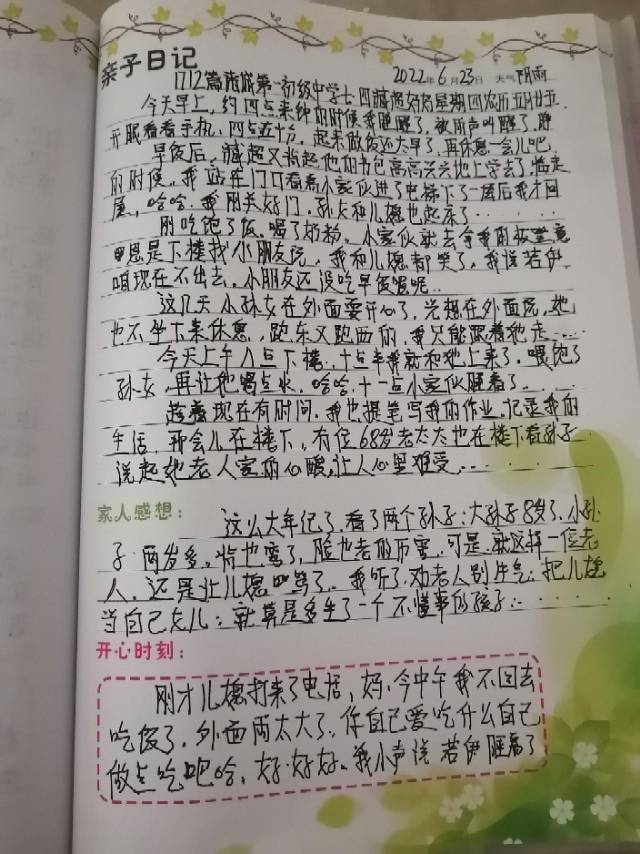 亲子日记
2022年6月23日 天气阴雨
1712篇 第一初级中学七四臧超好妈星期四农历五月廿五
今天早上，约四点来钟的时候我睡醒了，被雨声叫醒了，睁
开眼看看手机，四点五十分，起来做饭还太早了，再休息一会儿吧，
早饭后，臧超又背起他的书包高高兴兴地上学去了，临走
的时候，我站在门口看着小家伙进了电梯下了一层后我才回
屋，哈哈，我刚关好门，孙女和儿媳也起床了……
刚吃饱了饭，喝了奶粉，小家伙就去拿我的被垫意
思是下楼找小朋友玩，我和儿媳都笑了，我说若伊
咱现在不出去，小朋友还没吃早饭呢呢..
这几天小孙女在外面耍开心了，光想在外面玩，她
也不坐下来休息，跑东又跑西的，我只能跟着她走……
今天上午八点下楼，十点半我就和她上来了，喂饱了
孙女，再让她喝点水，哈哈，十一点小家伙睡着了。
趁着现在有时间，我也提笔写我的作业，记录我的
生活，那会儿在楼下，有位68岁老太太也在楼下看孙子
说起她老人家的心酸，让人心里难受……
家人感想：
这么大年纪了，看了两个孙子：大孙子8岁了，小孙
子两岁多，背也弯了，脸也老的厉害，可是，就这样一位老
人，还是让儿媳骂了，我听了，劝老人别生气：把儿媳
当自己女儿：就算是多生了一个不懂事的孩子……
开心时刻：
刚才儿媳打来了电话，妈，今中午我不回去
吃饭了，外面雨太大了，你自己爱吃什么自己
做点吃吧哈，好好好，我小声说若伊睡着了